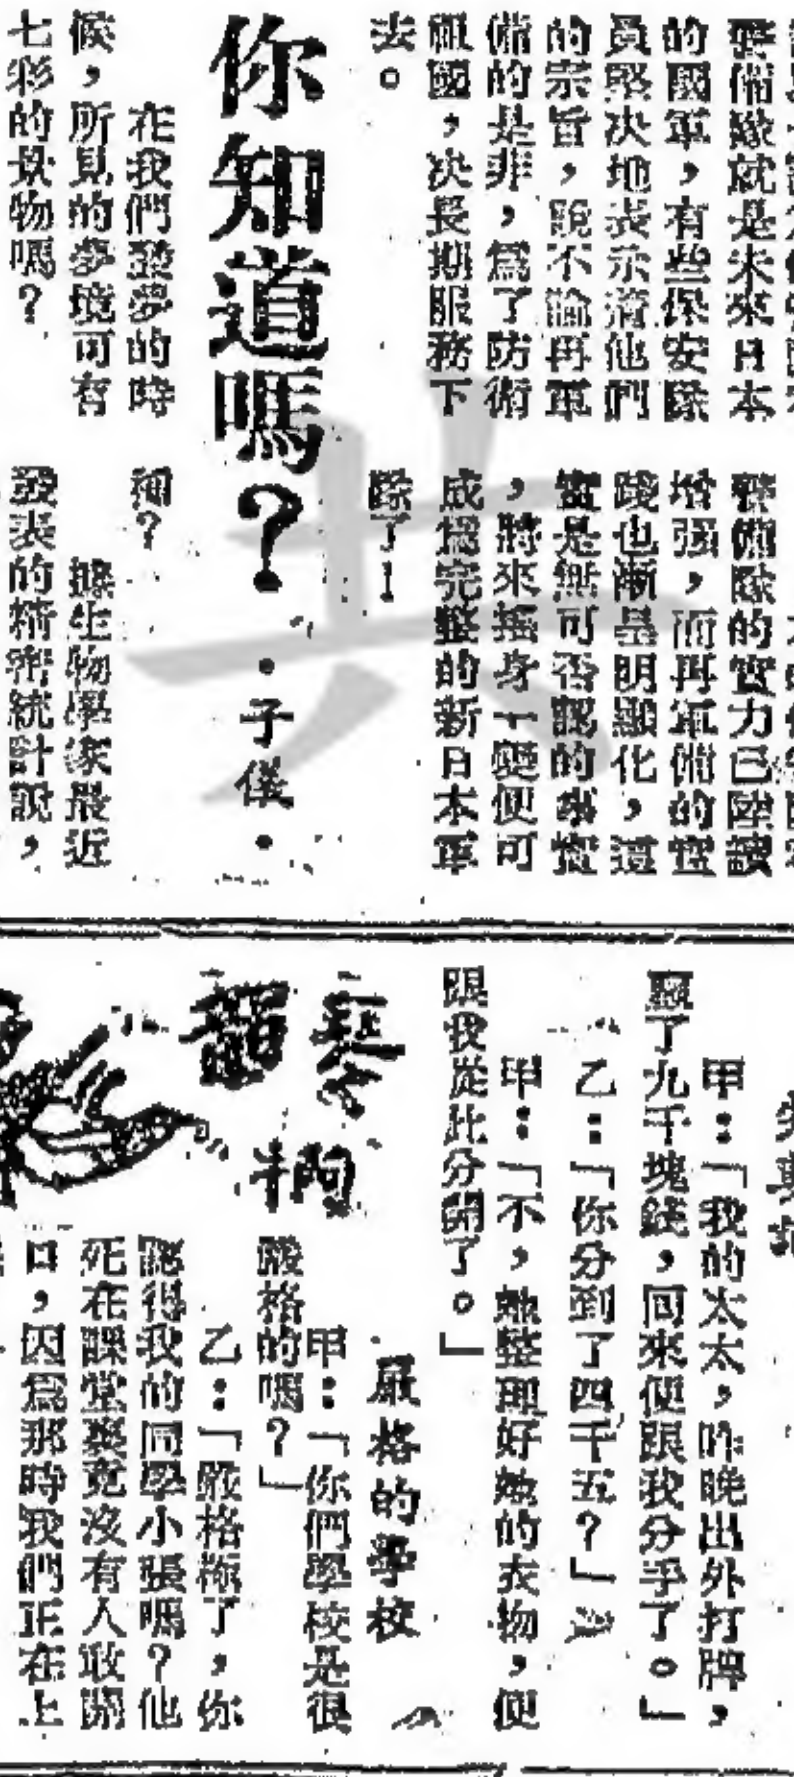 要備隊就是未來日本
的國軍，有些保安隊
員堅决地表示着他們
的宗旨，說不論再軍
備的是非，爲了防衛
祖國，决長期服務下
去。
警備隊的實力已陸續
增强，而再軍備的實
踐也漸呈明顯化，這
實是無可否認的事實
，將來搖身一變便可
成爲完整的新日本軍
隊了！
你知道嗎？
·子儀·
在我們發夢的時
候，所見的夢境可有
七彩的景物嗎？
據生物學家最近
發表的精密統計說，
甲：「我的太太，昨晚出外打牌，
贏了九千塊錢，回來便跟我分手了。」
乙：「你分到了四千五？」
甲：「不，她整理好她的衣物，便
跟我從此分開了。」
嚴格的學校
甲：「你們學校是很
嚴格的嗎？」
乙：「嚴格極了，你
認得我的同學小張嗎？他
死在課堂裏竟沒有人敢開
口，因爲那時我們正在上